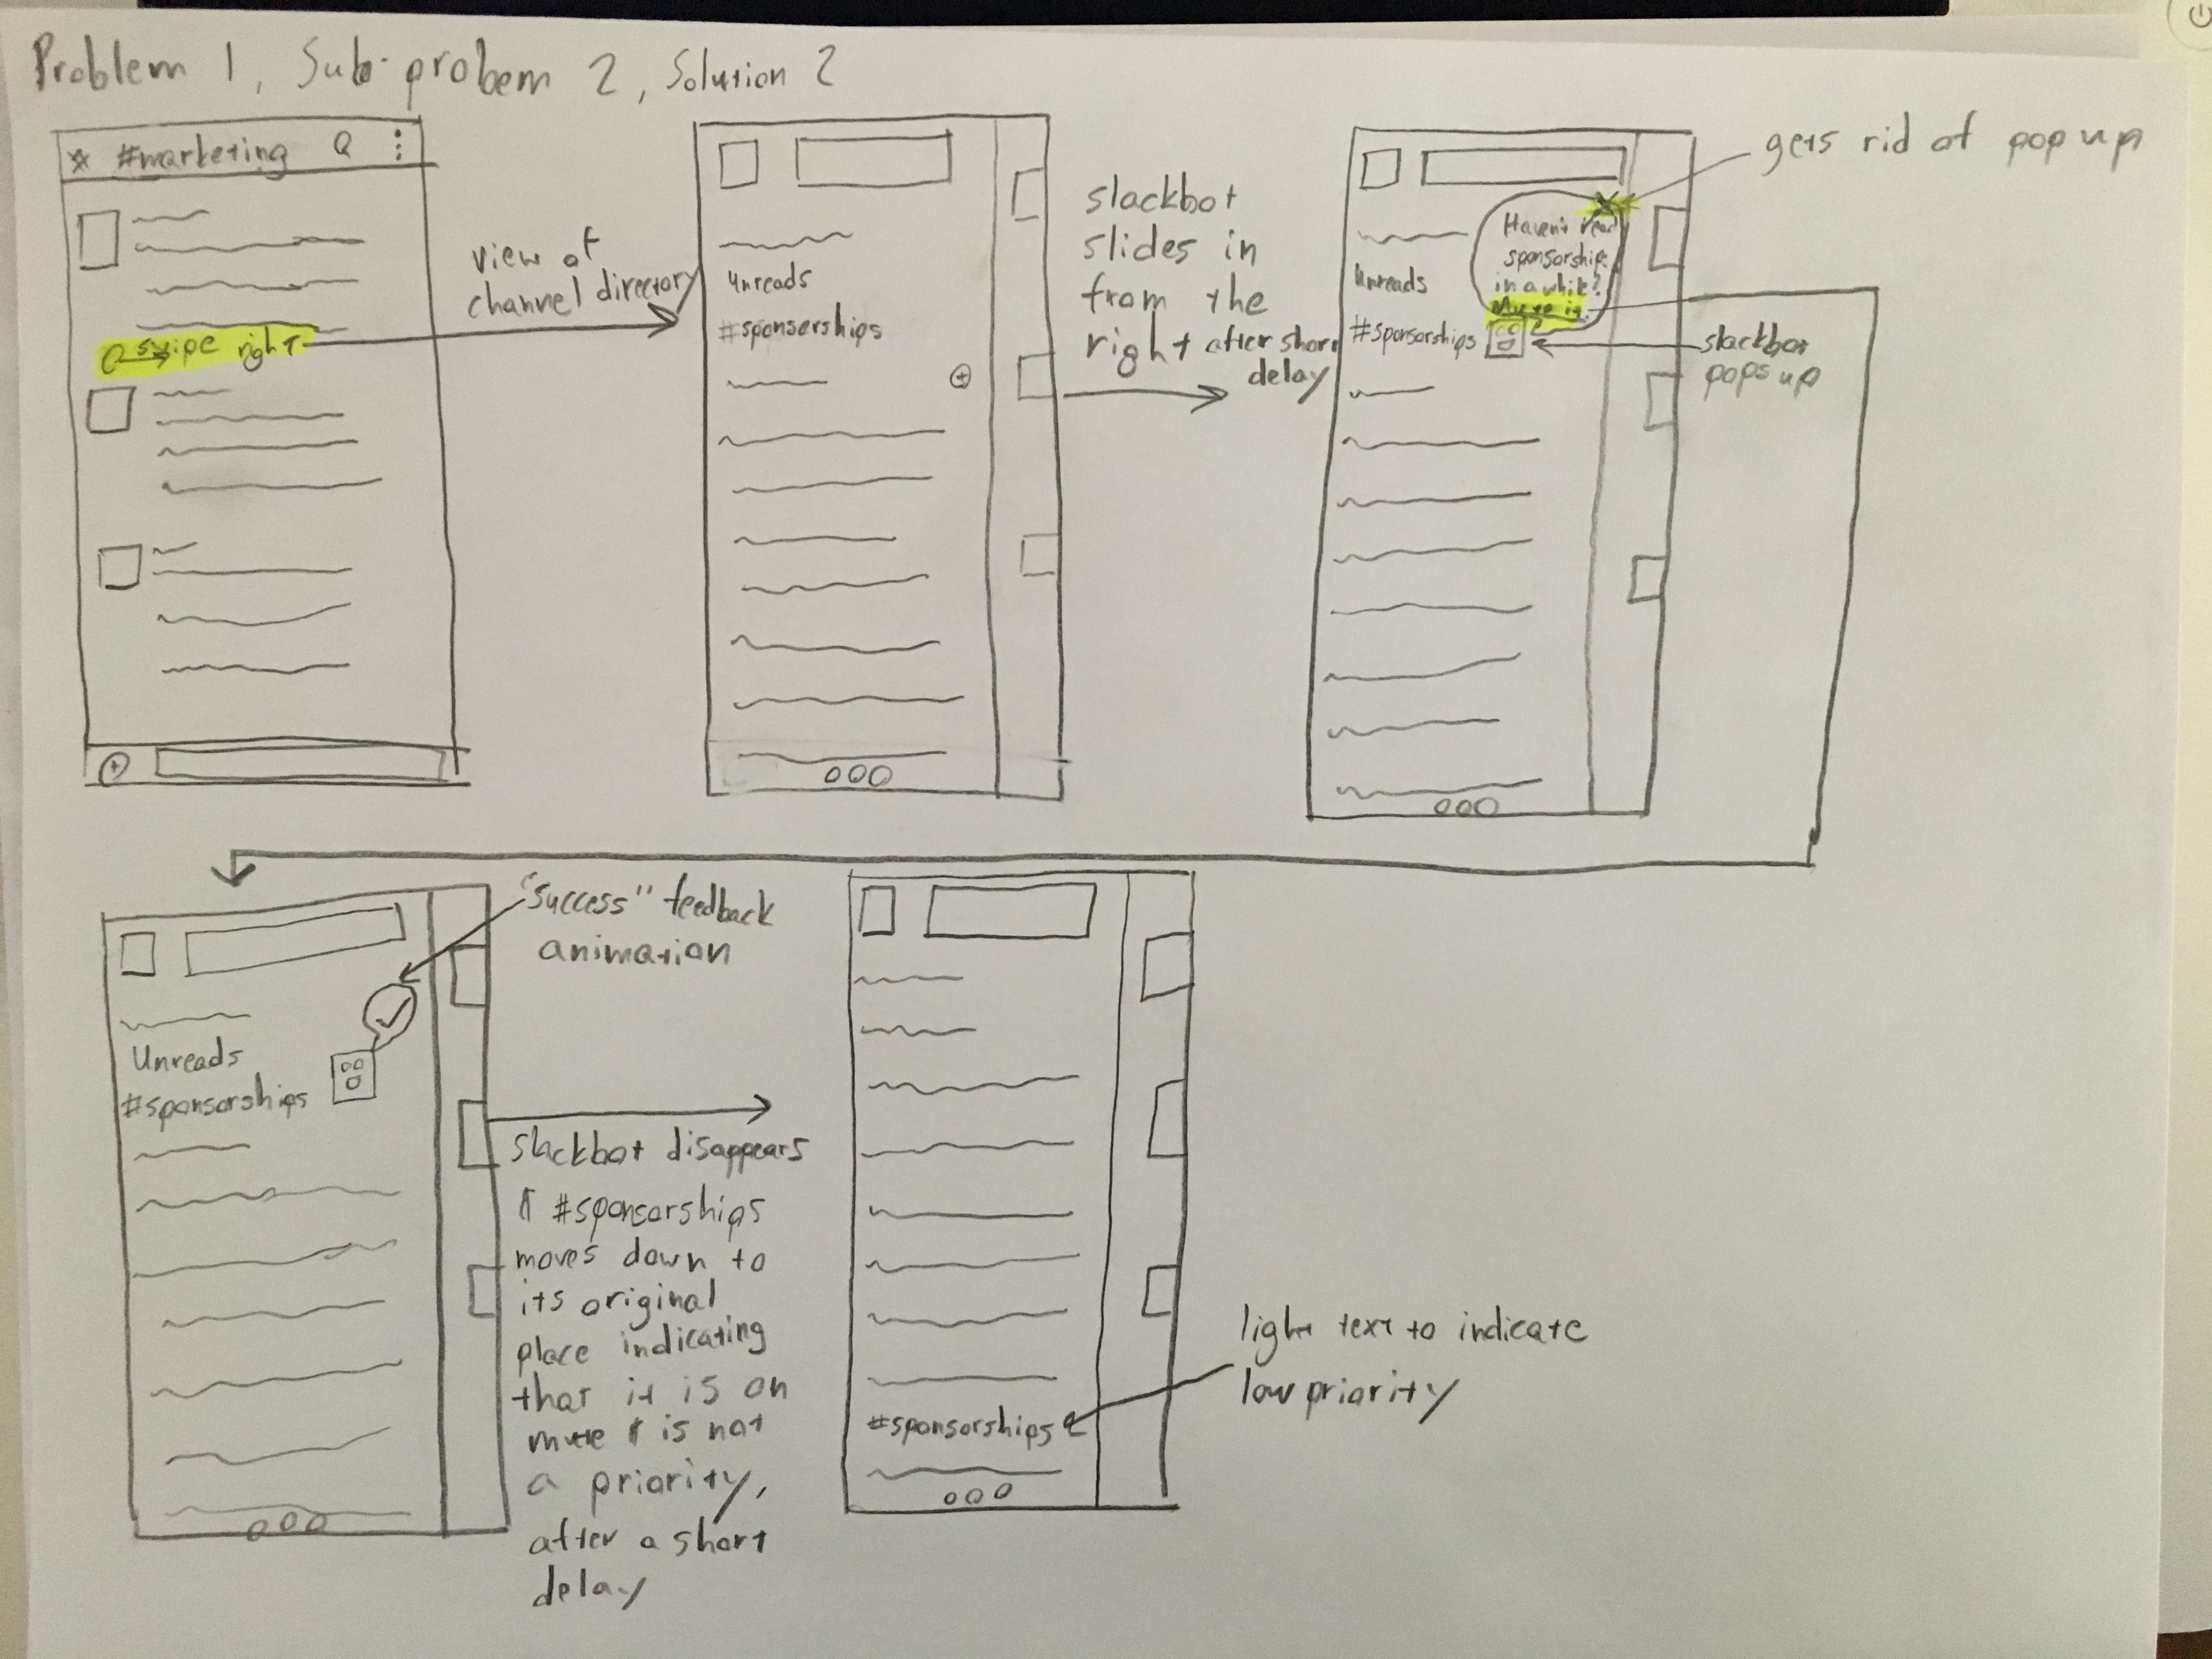 Problem 1, Sub-probem 2, Solution 2
#marketing
swipe right
view of
channel directory
Unreads
#sponserships
slackbot
slides in
from the
right after short
delay
Haven't read
sponsorships
in a while?
Mute it.
Unreads
#sponsorships
gets rid of pop up
slackbot
pops up
"success" feedback
animation
Unreads
#sponsorships
slackbot disappears
& #sponsorships
moves down to
its original
place indicating
that it is on
mute & is not
a priority,
after a short
delay
#sponsorships
light text to indicate
low priority